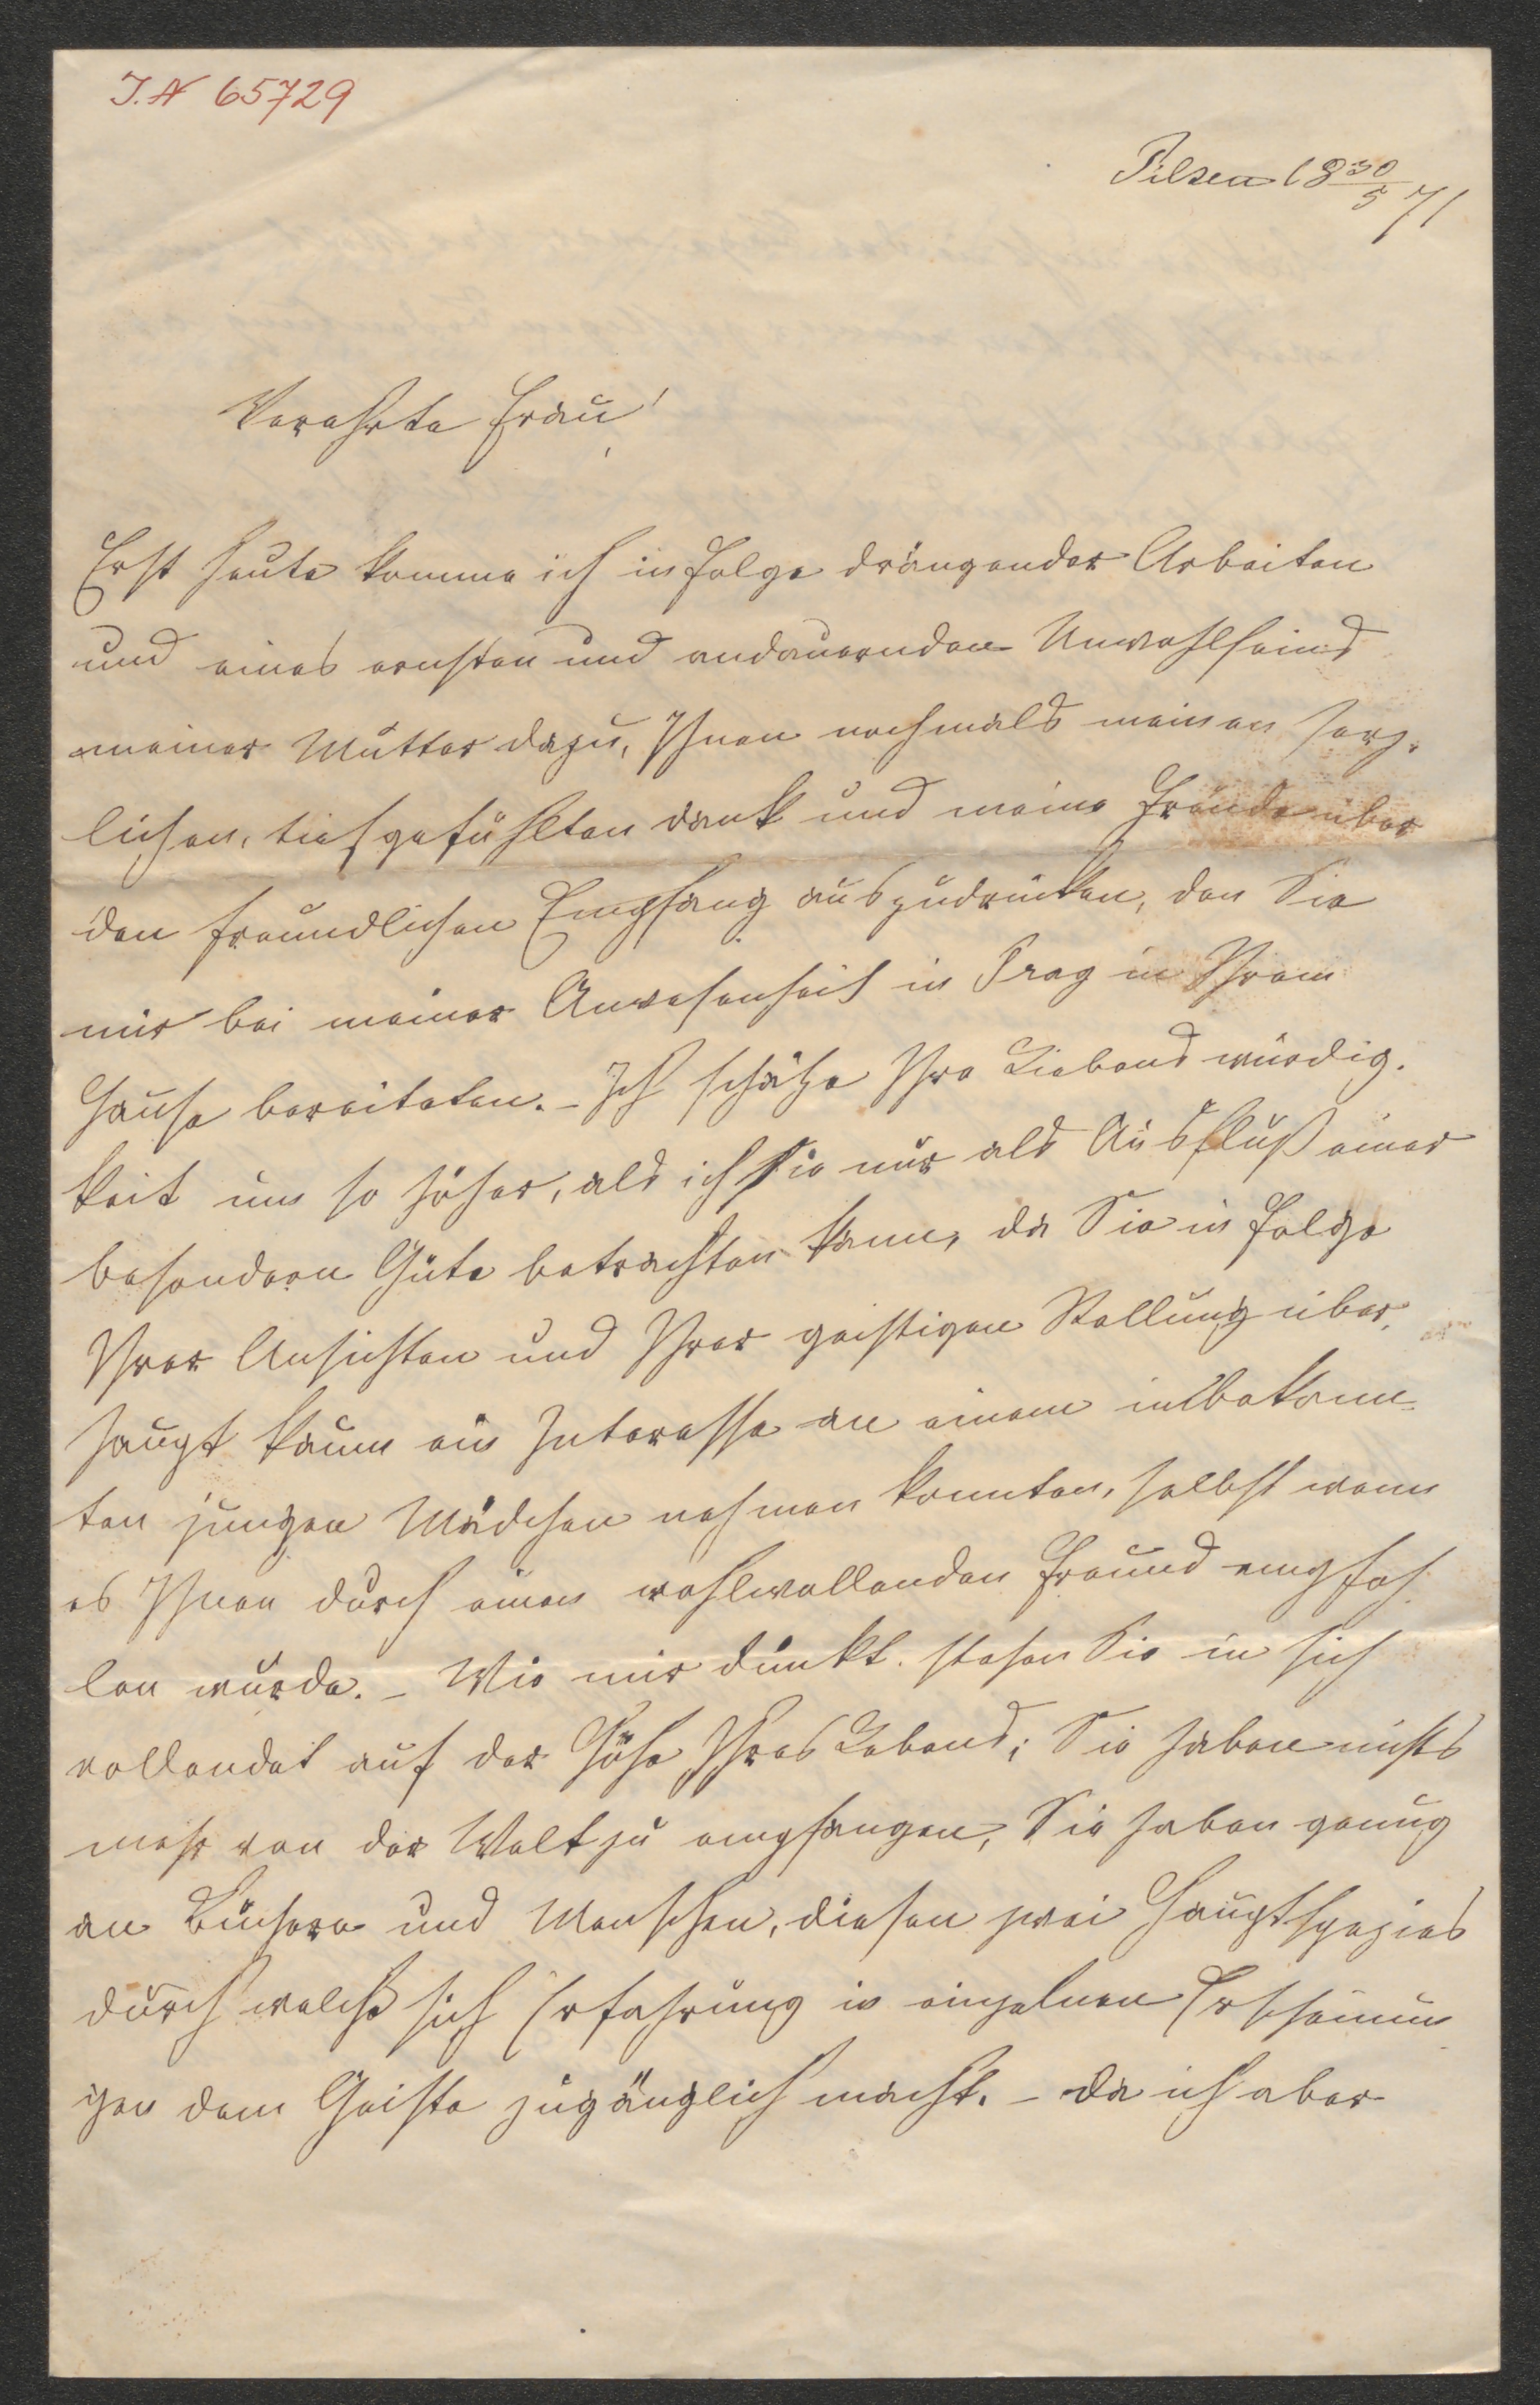 I.N 65729
Pilsen 18 30/5 71
Verehrte Frau!
Erst heute komme ich in Folge drängender Arbeiten
und eines ernsten und andauernden Unwohlseins
meiner Mutter dazu, Ihnen nochmals meinen herz-
lichen, tiefgefühlten Dank und meine Freude über
den freundlichen Empfang auszudrücken, den Sie
mir bei meiner Anwesenheit in Prag in Ihrem
Hause bereiteten. – Ich schätze Ihre Liebenswürdig-
keit um so höher, als ich sie nur als Ausfluß einer
besondern Güte betrachten kann, da Sie in Folge
Ihrer Ansichten und Ihrer geistigen Stellung über-
haupt kaum ein Interesse an einem unbekann-
ten jungen Mädchen nehmen konnten, selbst wenn
es Ihnen durch einen wohlwollenden Freund empfoh-
len wurde. – Wie mir dünkt, stehen Sie in sich
vollendet auf der Höhe Ihres Lebens; Sie haben nichts
mehr von der Welt zu empfangen, Sie haben genug
an Büchern und Menschen, diesen zwei Hauptspezies
durch welche sich Erfahrung in einzelnen Erscheinun
gen dem Geiste zugänglich macht. – Da ich aber